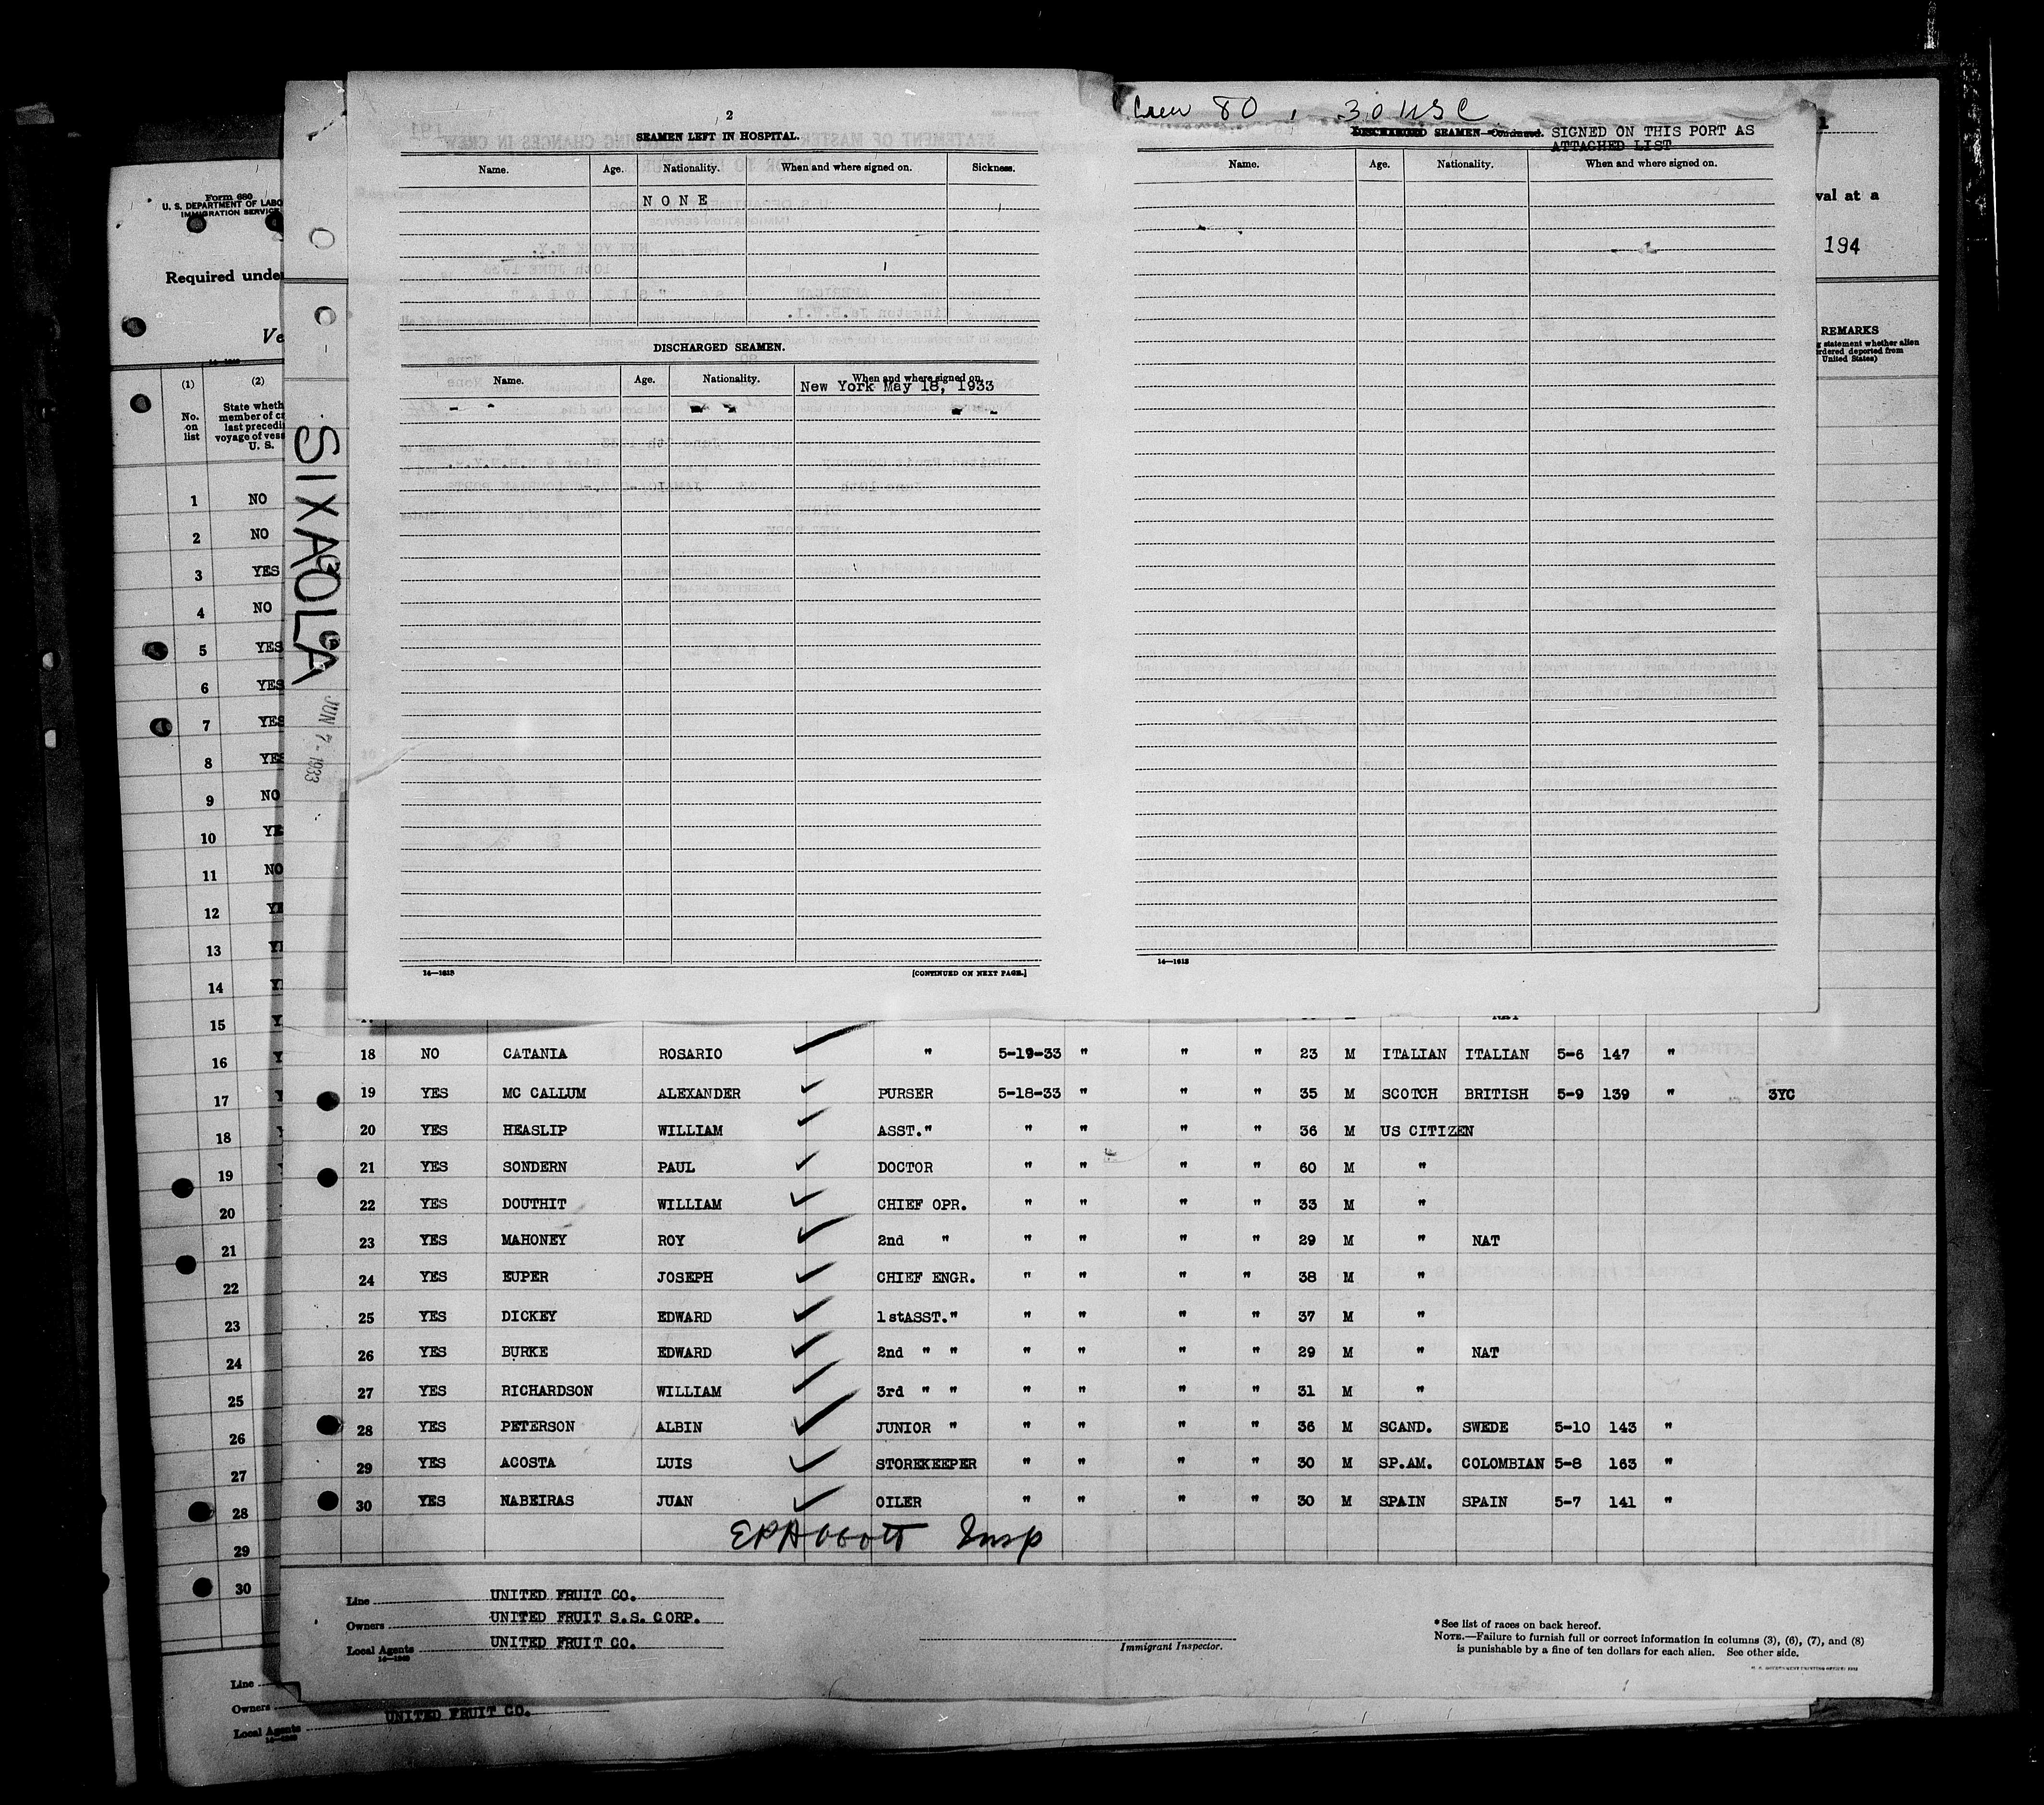 Crew 80, 30 USC
2
SEAMEN LEFT IN HOSPITAL.
Name. Age. Nationality. When and where signed on. Sickness.
NONE
DISCHARGED SEAMEN.
Name. Age. Nationality. When and where signed on.
New York May 18, 1933
14—1613 [CONTINUED ON NEXT PAGE.]
DISCHARGED SEAMEN—Continued. SIGNED ON THIS PORT AS
ATTACHED LIST
Name. Age. Nationality. When and where signed on.
14—1613
Form 680
U. S. DEPARTMENT OF LABO
IMMIGRATION SERVICE
Required unde
Ve
14—1240
(1) (2)
No. on list
State wheth
member of c
last precedi
voyage of vess
U. S.
1 NO
2 NO
3 YES
4 NO
5 YES
6 YES
7 YES
8 YES
9 NO
10 YE
11 NO
12 YE
13 Y
14 Y
15 Y
16 Y
17 Y
18
19
20
21
22
23
24
25
26
27
28
29
30
SIXAOLA
JUN 7-1933
1
val at a
194
REMARKS
g statement whether alien
rdered deported from
United States)
NAT
18 NO CATANIA ROSARIO " 5-19-33 " " " 23 M ITALIAN ITALIAN 5-6 147 "
19 YES MC CALLUM ALEXANDER PURSER 5-18-33 " " " 35 M SCOTCH BRITISH 5-9 139 " 3YC
20 YES HEASLIP WILLIAM ASST." " " " " 36 M US CITIZEN
21 YES SONDERN PAUL DOCTOR " " " " 60 M "
22 YES DOUTHIT WILLIAM CHIEF OPR. " " " " 33 M "
23 YES MAHONEY ROY 2nd " " " " " 29 M " NAT
24 YES EUPER JOSEPH CHIEF ENGR. " " " " 38 M "
25 YES DICKEY EDWARD 1stASST." " " " " 37 M "
26 YES BURKE EDWARD 2nd " " " " " " 29 M " NAT
27 YES RICHARDSON WILLIAM 3rd " " " " " " 31 M "
28 YES PETERSON ALBIN JUNIOR " " " " " 36 M SCAND. SWEDE 5-10 143 "
29 YES ACOSTA LUIS STOREKEEPER " " " " 30 M SP.AM. COLOMBIAN 5-8 163 "
30 YES NABEIRAS JUAN OILER " " " " 30 M SPAIN SPAIN 5-7 141 "
EPAbbott Insp
Line UNITED FRUIT CO.
Owners UNITED FRUIT S.S. CORP.
Local Agents UNITED FRUIT CO.
14—1240
Immigrant Inspector.
*See list of races on back hereof.
NOTE.—Failure to furnish full or correct information in columns (3), (6), (7), and (8)
is punishable by a fine of ten dollars for each alien. See other side.
Line
Owners
Local Agents UNITED FRUIT CO.
14—1240